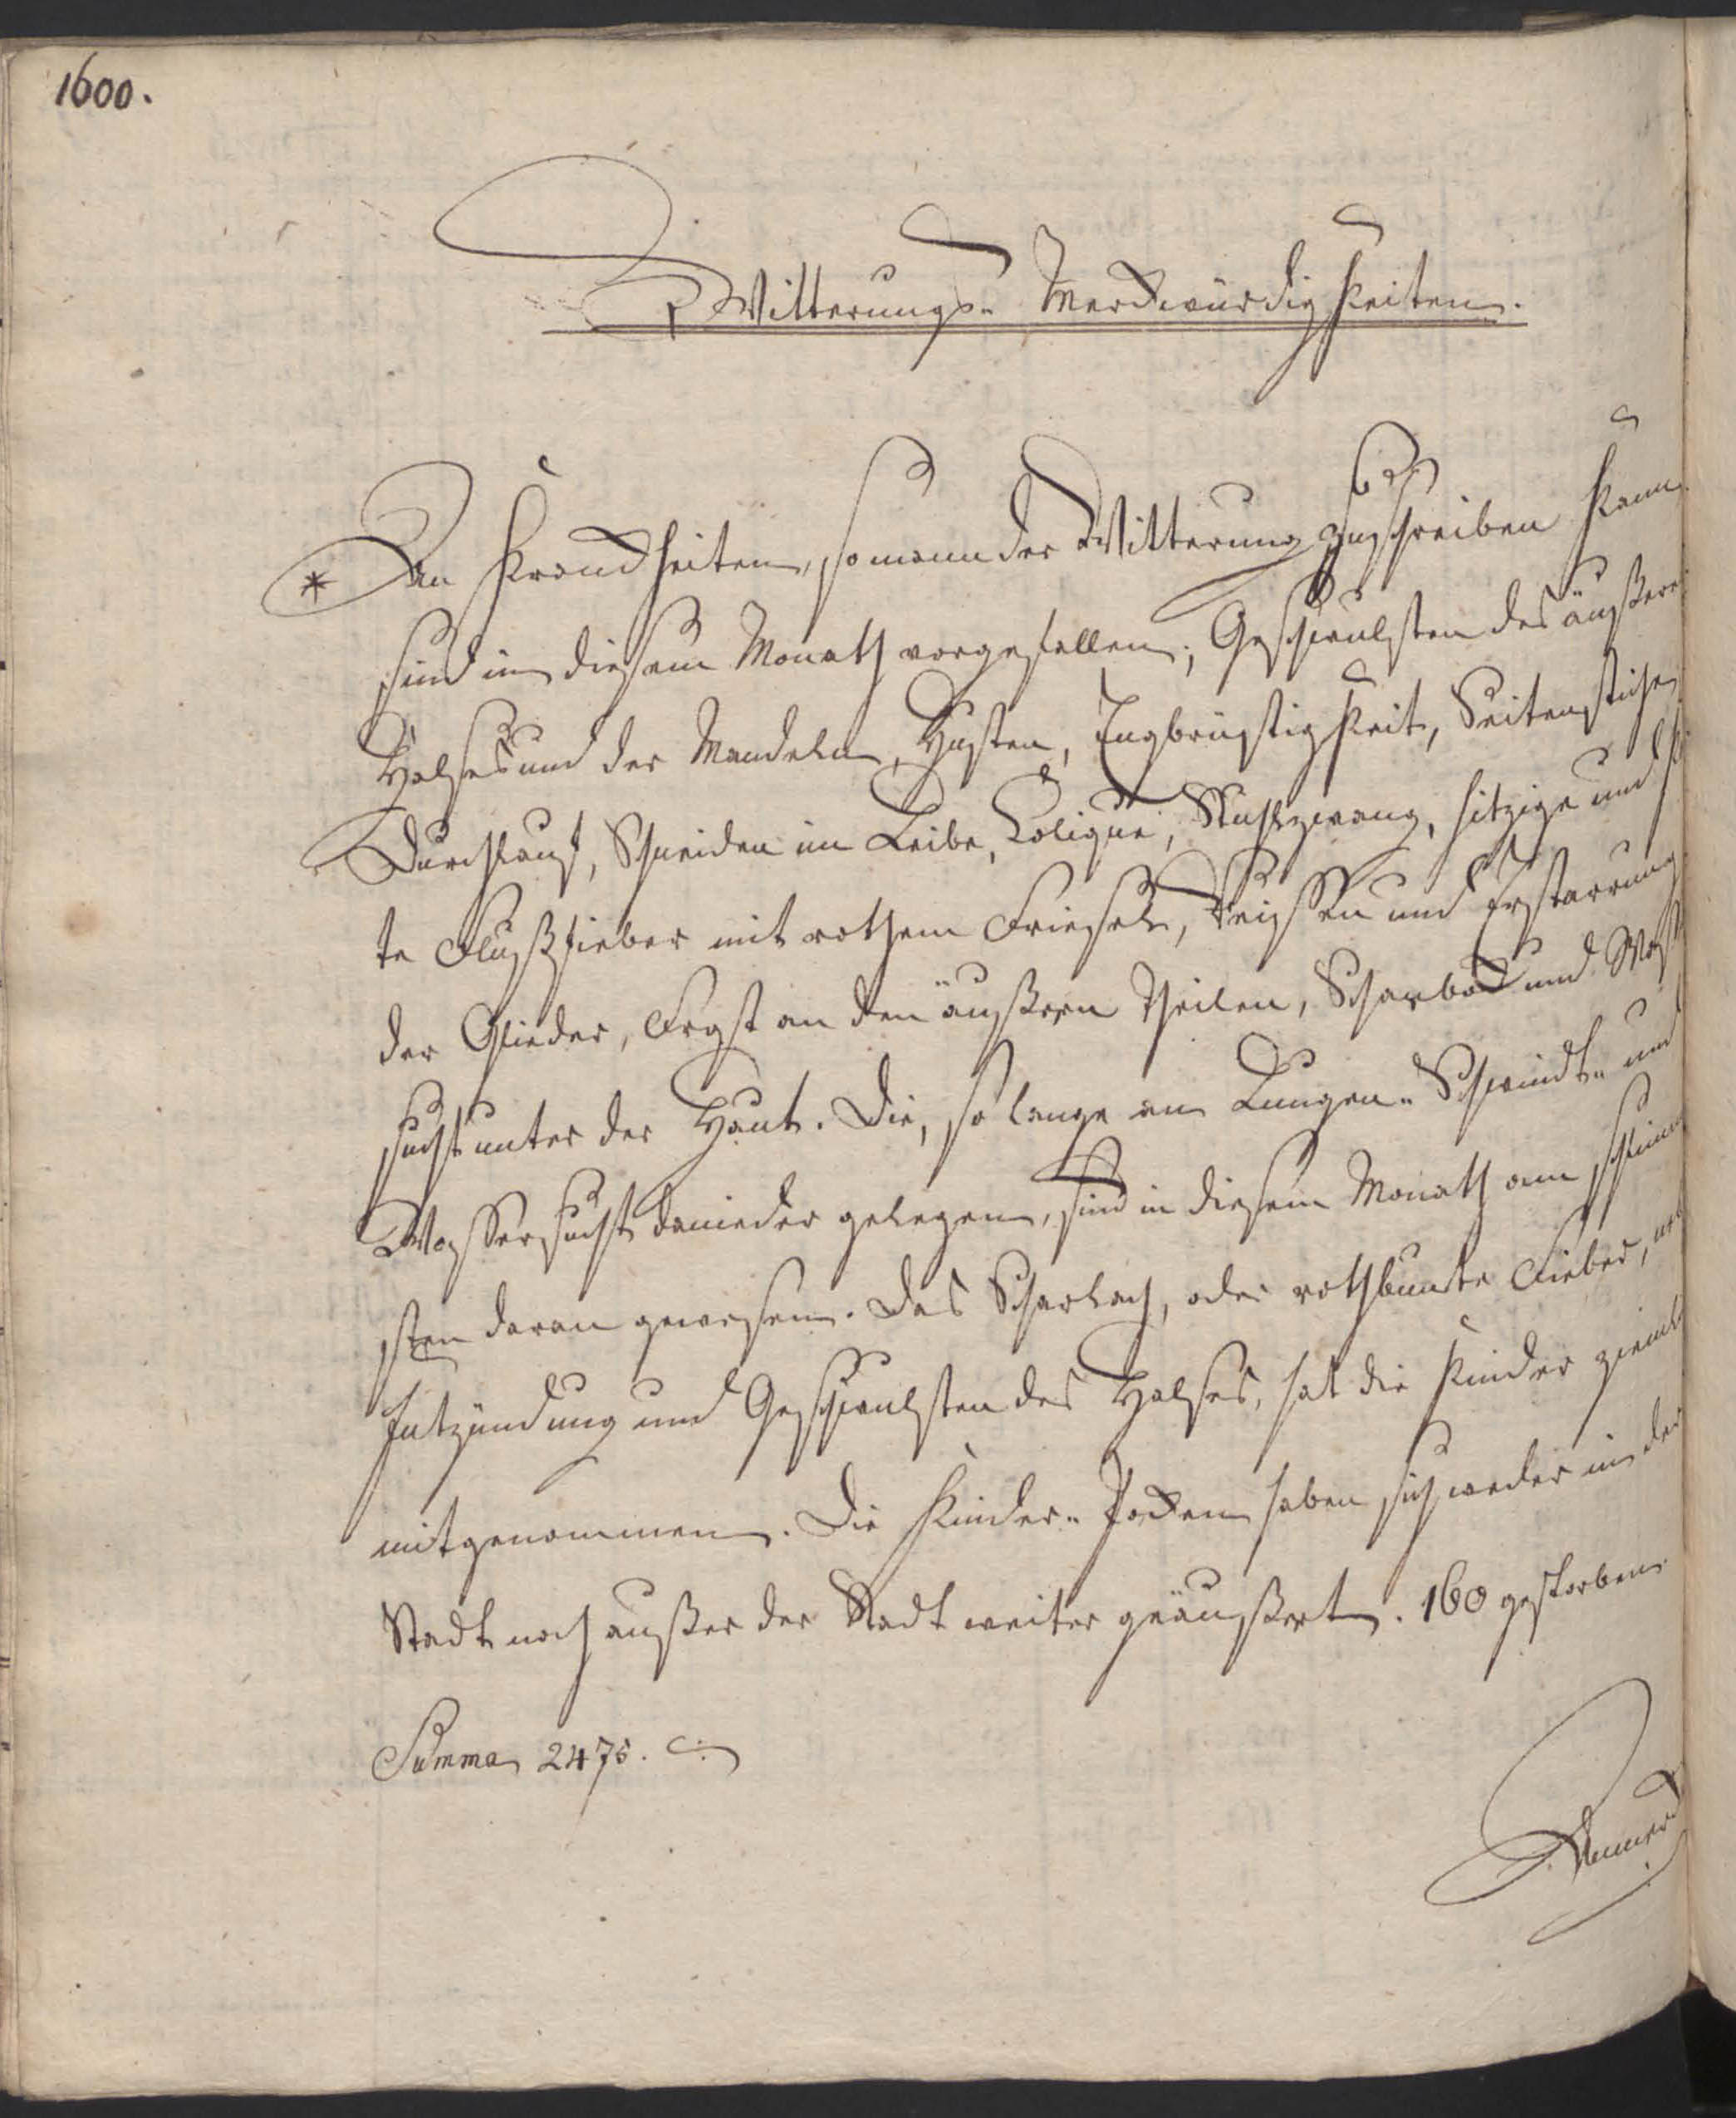 1600.
Witterungs-Merckwürdigkeiten.
* An Kranckheiten, so mann der Witterung zuschreiben kann
sind in diesem Monath vorgefallen; Geschwulsten des äußern
Halses und der Mandeln, Husten, Engbrüstigkeit, Seitenstiche
Durchlauf, Schneiden im Leibe, Colique, Stuhlzwang, hitzige und
te Flußfieber mit rothem Friesel, Reissen und Erstarrung
der Glieder, Frost an den äußern Theilen, Scharbock und
sucht unter der Haut. Die, so lange an Lungen- Schwindt- und
Wassersucht danieder gelegen, sind in diesem Monath am schlim
sten daran gewesen. Das Scharlach, oder rothbunte Fieber,
Entzündung und Geschwulsten des Halses, hat die Kinder zieml
mitgenommen. Die Kinder-Pocken haben sich weder in der
Stadt noch außer der Stadt weiter geäußert. 160 gestorben
Summa 2475.